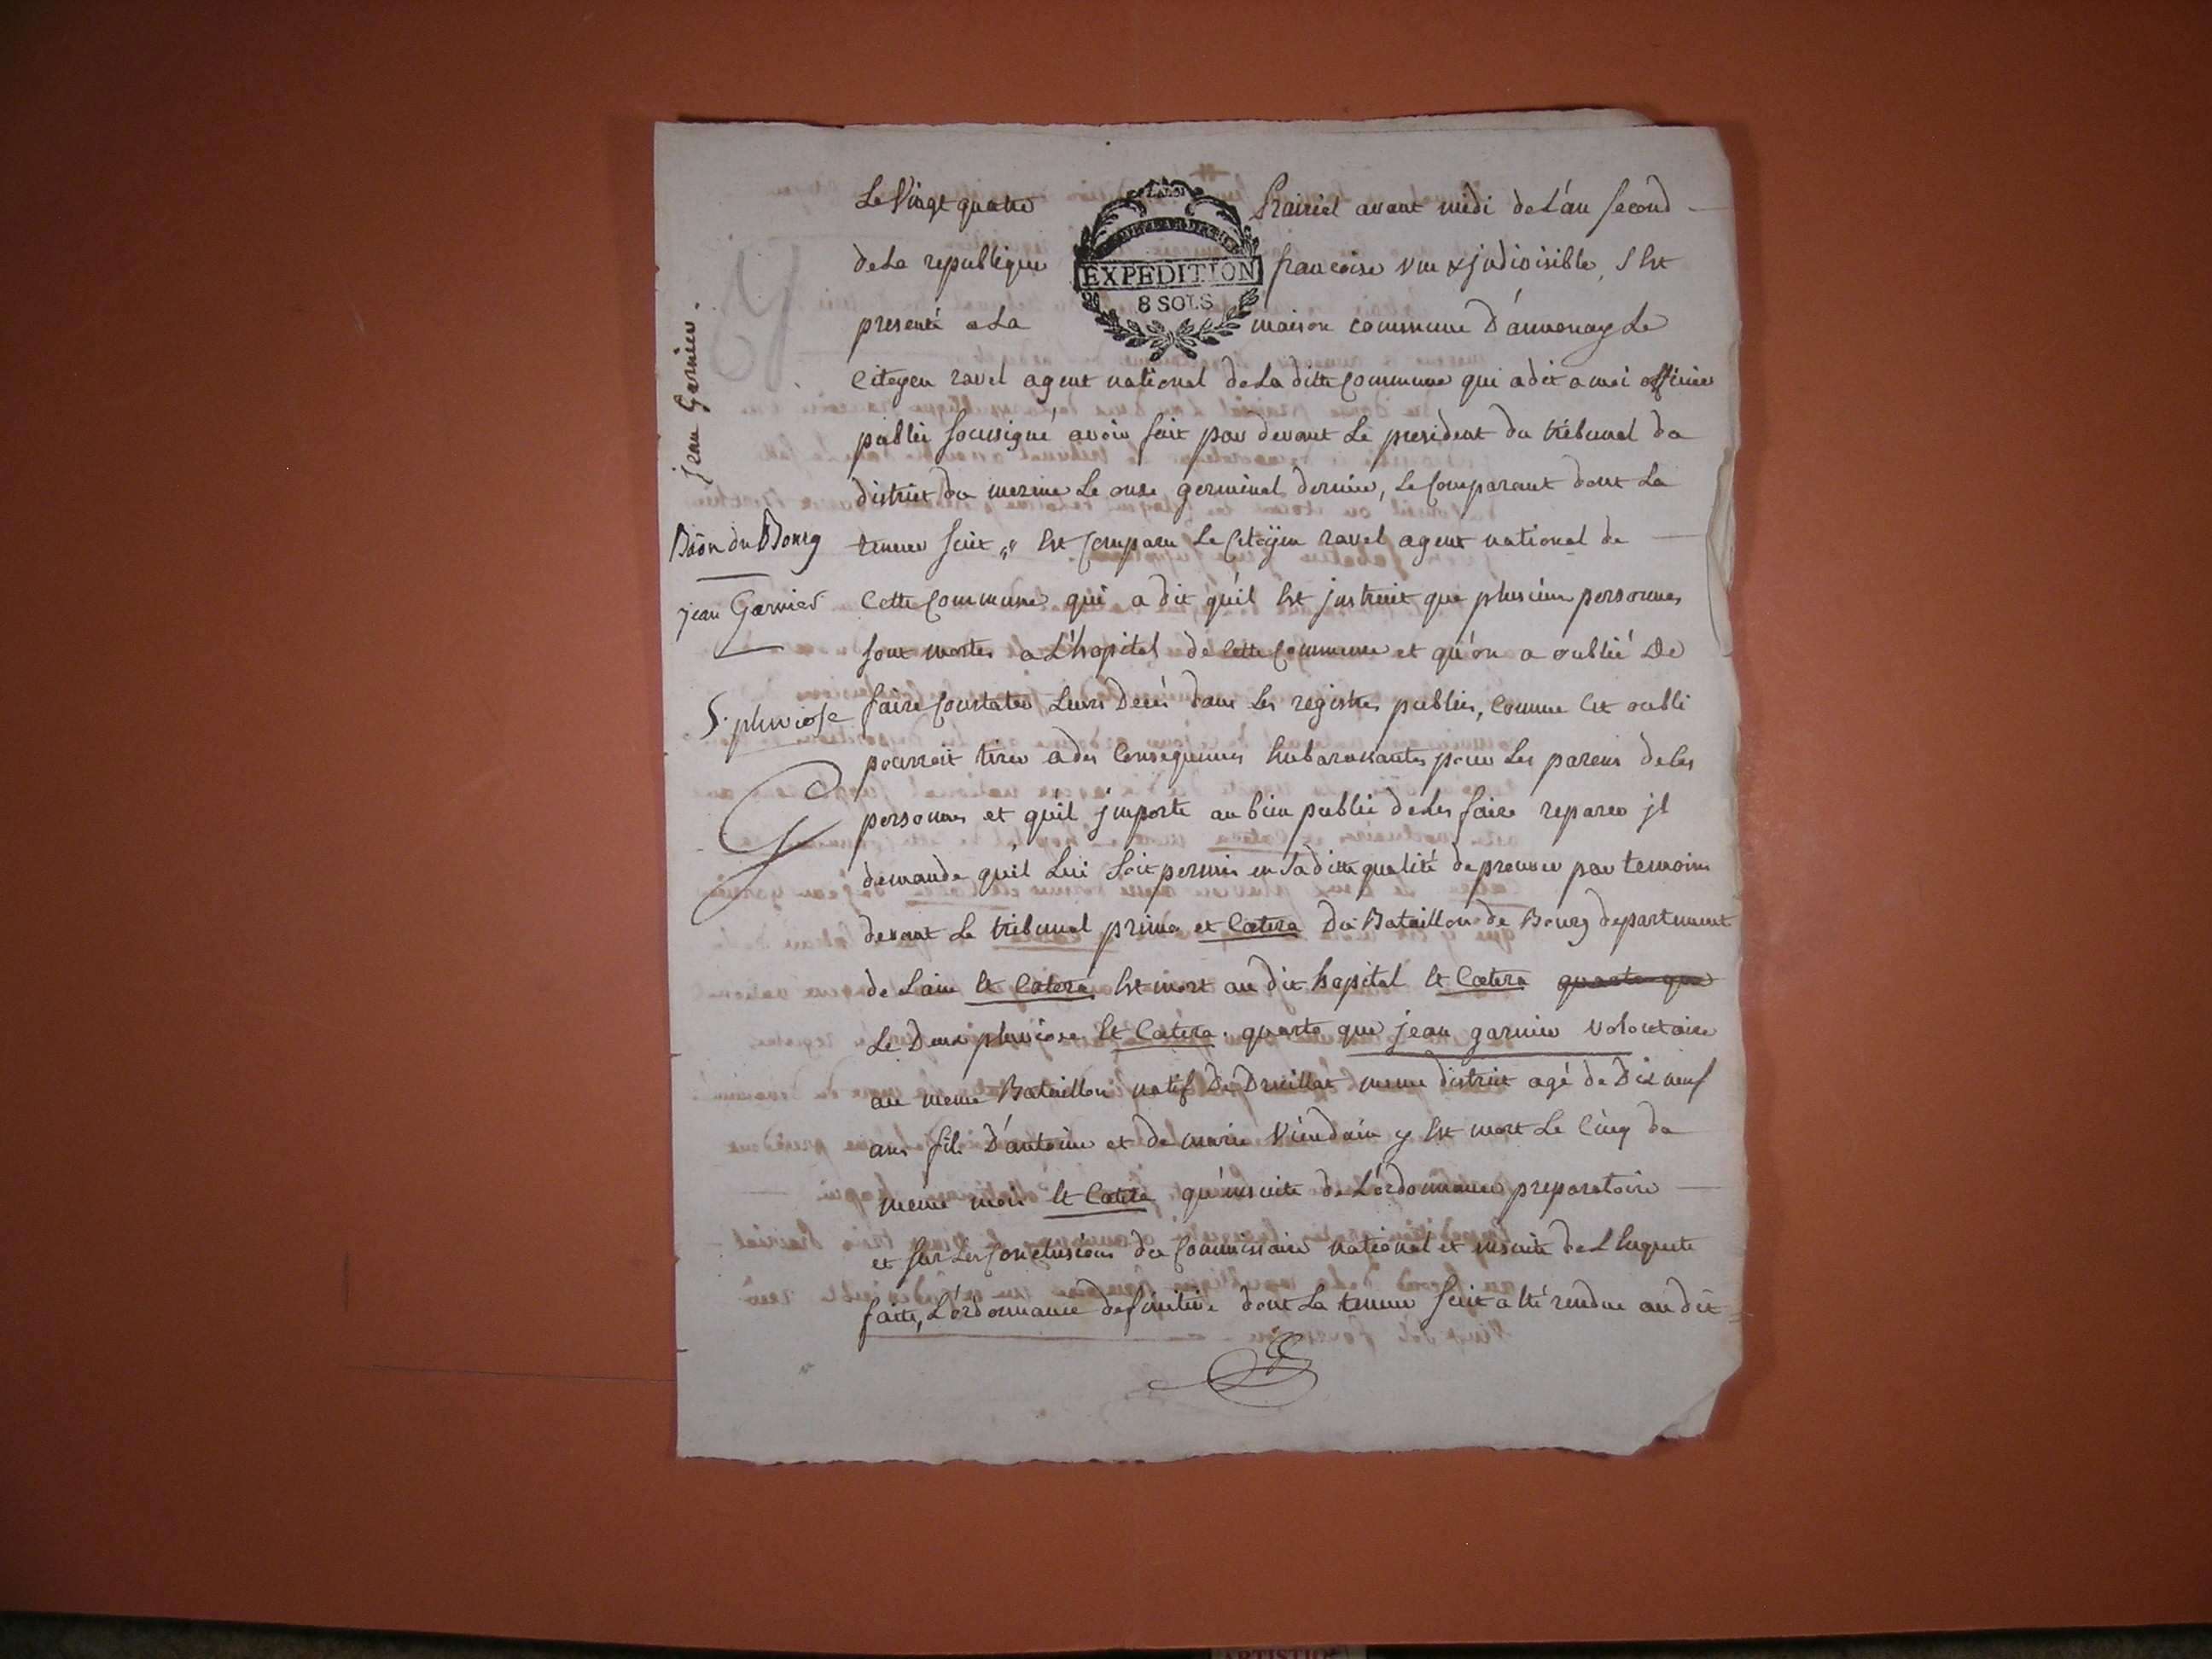 Le Vingt quatre prairial avant midi de L'an second
de La republique francoise une & jndivisible, s'est
presenté a La maison commune d'annonay Le
LA LOI
EXPEDITION
8 SOLS
Citoyen ravel agent national de La ditte commune qui a dit a moi officier
public soussigné avoir fait par devant Le president du tribunal du
district du mezenc Le onze germinal dernier, Le comparant dont La
teneur suit „ Est comparu Le Citoyen ravel agent national de
Cette commune qui a dit qu'il Est jnstruit que plusieurs personnes
sont mortes a L'hopital de Cette commune et qu'on a oublié De
faire constater Leurs Decès dans Les registres publics, comme Cet oubli
pourroit tirer a des Consequences Embarassantes pour Les parens de Ces
personnes et qu'il jmporte au bien public de Les faire reparer jl
demande qu'il Lui soit permis en Sa ditte qualité de prouver par temoins
devant Le tribunal primo et Cœtera du Bataillon de Bourg departement
de L'ain Et Cœtera Est mort au dit hopital Et Cœtera quarto que
Le Deux pluviose Et Cœtera. quarto que jean garnier volontaire
au meme Bataillon natif De Druillat meme district agé de Dix neuf
ans fils D'antoine et de marie y Est mort Le Cinq du
même mois Et Cœtera qu'ensuite de L'ordonnance preparatoire
et sur Les Conclusions du Commissaire national et ensuite de L'Enquete
faite, L'ordonnance definitive dont La teneur suit a Eté rendue au dit
jean Garnier.
B\u00e3on du Bourg
jean Garnier
5. pluviose